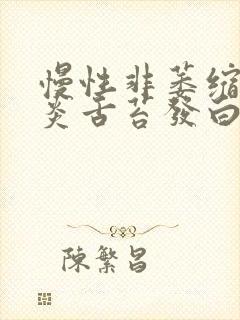 慢性非萎缩
炎舌苔發白
陳繁昌